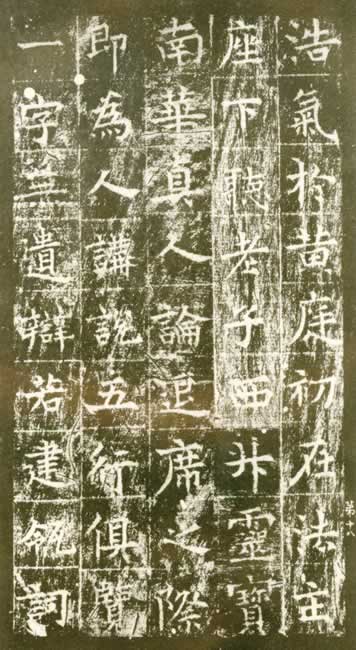 浩氣於黄庭初在法主
座下聽老子西升靈寶
南華真人論退席之際
即為人講説五行俱覽
一字無遺辯若建瓴詞